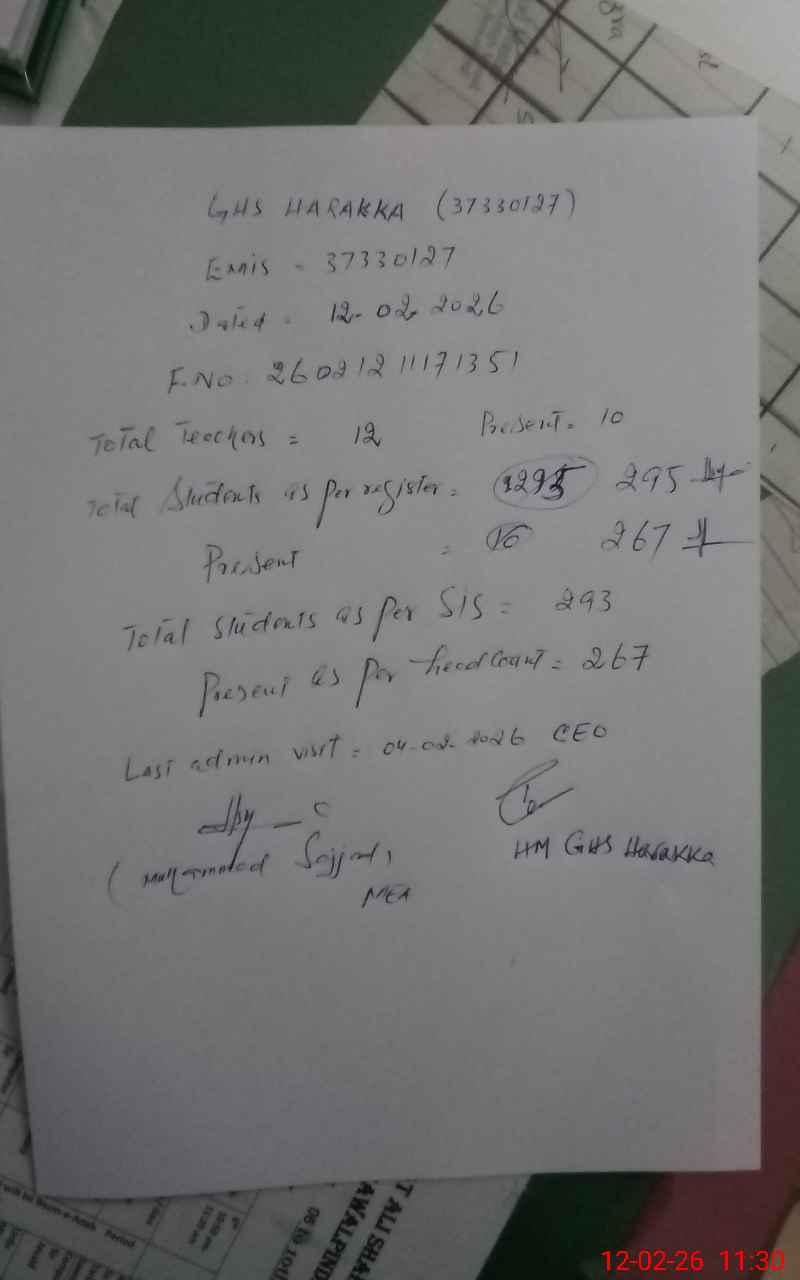 GHS HARAKKA (37330127)
Emis - 37330127
Dated - 12-02-2026
F.No: 26021211171351
Total Teachers = 12 Present = 10
Total Students as per register = 295
Present = 267
Total students as per SIS = 293
Present as per headcount = 267
Last admin visit = 04-02-2026 CEO
(Muhammad Sajjad)
MEA
HM GHS Harakka
T ALI SHA
AWALPIND
Period
12-02-26 11:30